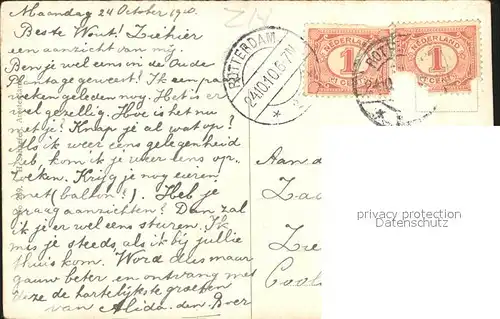 Maandag 24 October 1910.
Beste Wout! Ziehier
een aanzicht van mij.
Ben je wel eens in de Oude
Plantage geweest! Ik een paar
weken geleden nog. Het is er
wel gezellig. Hoe is het nu
met je? Knap je al wat op?
Als ik weer eens gelegenheid
heb, kom ik je weer eens op-
zoeken. Krijg je nog even
met (balton!). Heb je
graag aanzichten? Dan, zal
ik je er wel eens sturen. Ik
mis je steeds als ik bij jullie
thuis kom. Word dus maar
gauw beter en ontvang met
deze de hartelijkste groeten
van Alida den Boer
ROTTERDAM
24.10.10.5-7N
NEDERLAND
1
CENT
NEDERLAND
1
CENT
24.10
Aan d
Za
Zie
Cools
privacy protection
VERSANDHANDEL